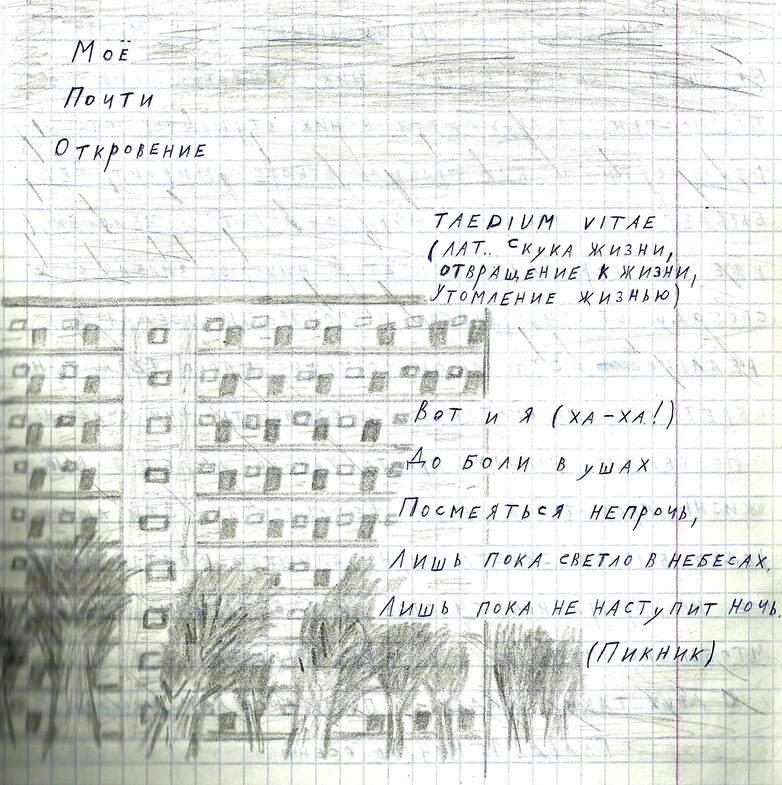 Моё
Почти
Откровение
TAEDIUM VITAE
(ЛАТ.. СКУКА ЖИЗНИ,
ОТВРАЩЕНИЕ К ЖИЗНИ,
УТОМЛЕНИЕ ЖИЗНЬЮ)
Вот и я (ха-ха!)
До боли в ушах
Посмеяться непрочь,
Лишь пока светло в небесах,
Лишь пока не наступит ночь.
(Пикник)